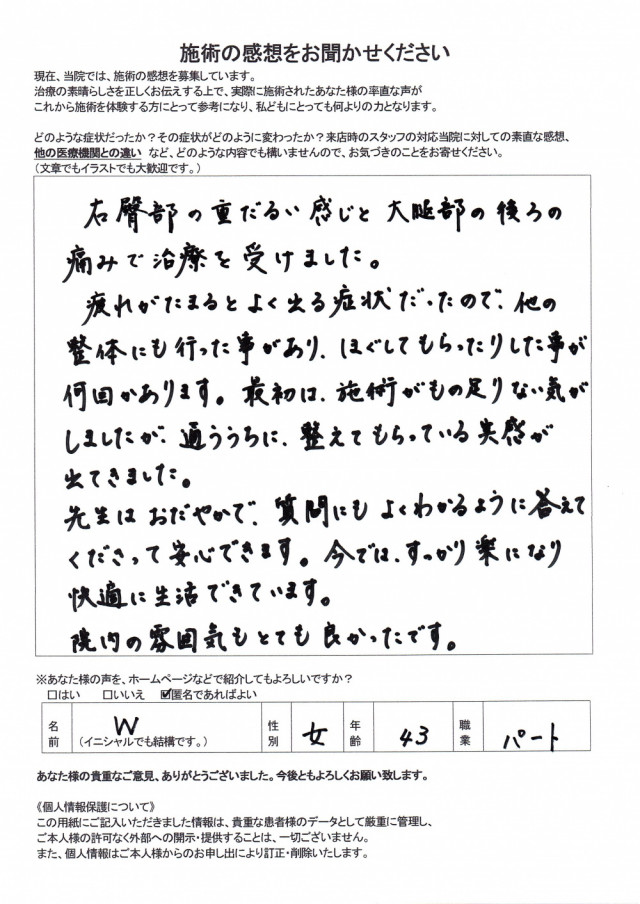 施術の感想をお聞かせください
現在、当院では、施術の感想を募集しています。
治療の素晴らしさを正しくお伝えする上で、実際に施術されたあなた様の率直な声が
これから施術を体験する方にとって参考になり、私どもにとっても何よりの力となります。
どのような症状だったか？その症状がどのように変わったか？来店時のスタッフの対応当院に対しての素直な感想、
他の医療機関との違い など、どのような内容でも構いませんので、お気づきのことをお寄せください。
（文章でもイラストでも大歓迎です。）
右臀部の重だるい感じと大腿部の後ろの
痛みで治療を受けました。
疲れがたまるとよく出る症状だったので、他の
整体にも行った事があり、ほぐしてもらったりした事が
何回かあります。最初は、施術がもの足りない気が
しましたが、通ううちに、整えてもらっている実感が
出てきました。
先生はおだやかで、質問にもよくわかるように答えて
くださって安心できます。今では、すっかり楽になり
快適に生活できています。
院内の雰囲気もとても良かったです。
※あなた様の声を、ホームページなどで紹介してもよろしいですか？
□はい □いいえ ☑匿名であればよい
名前 W （イニシャルでも結構です。） 性別 女 年齢 43 職業 パート
あなた様の貴重なご意見、ありがとうございました。今後ともよろしくお願い致します。
《個人情報保護について》
この用紙にご記入いただきました情報は、貴重な患者様のデータとして厳重に管理し、
ご本人様の許可なく外部への開示・提供することは、一切ございません。
また、個人情報はご本人様からのお申し出により訂正・削除いたします。